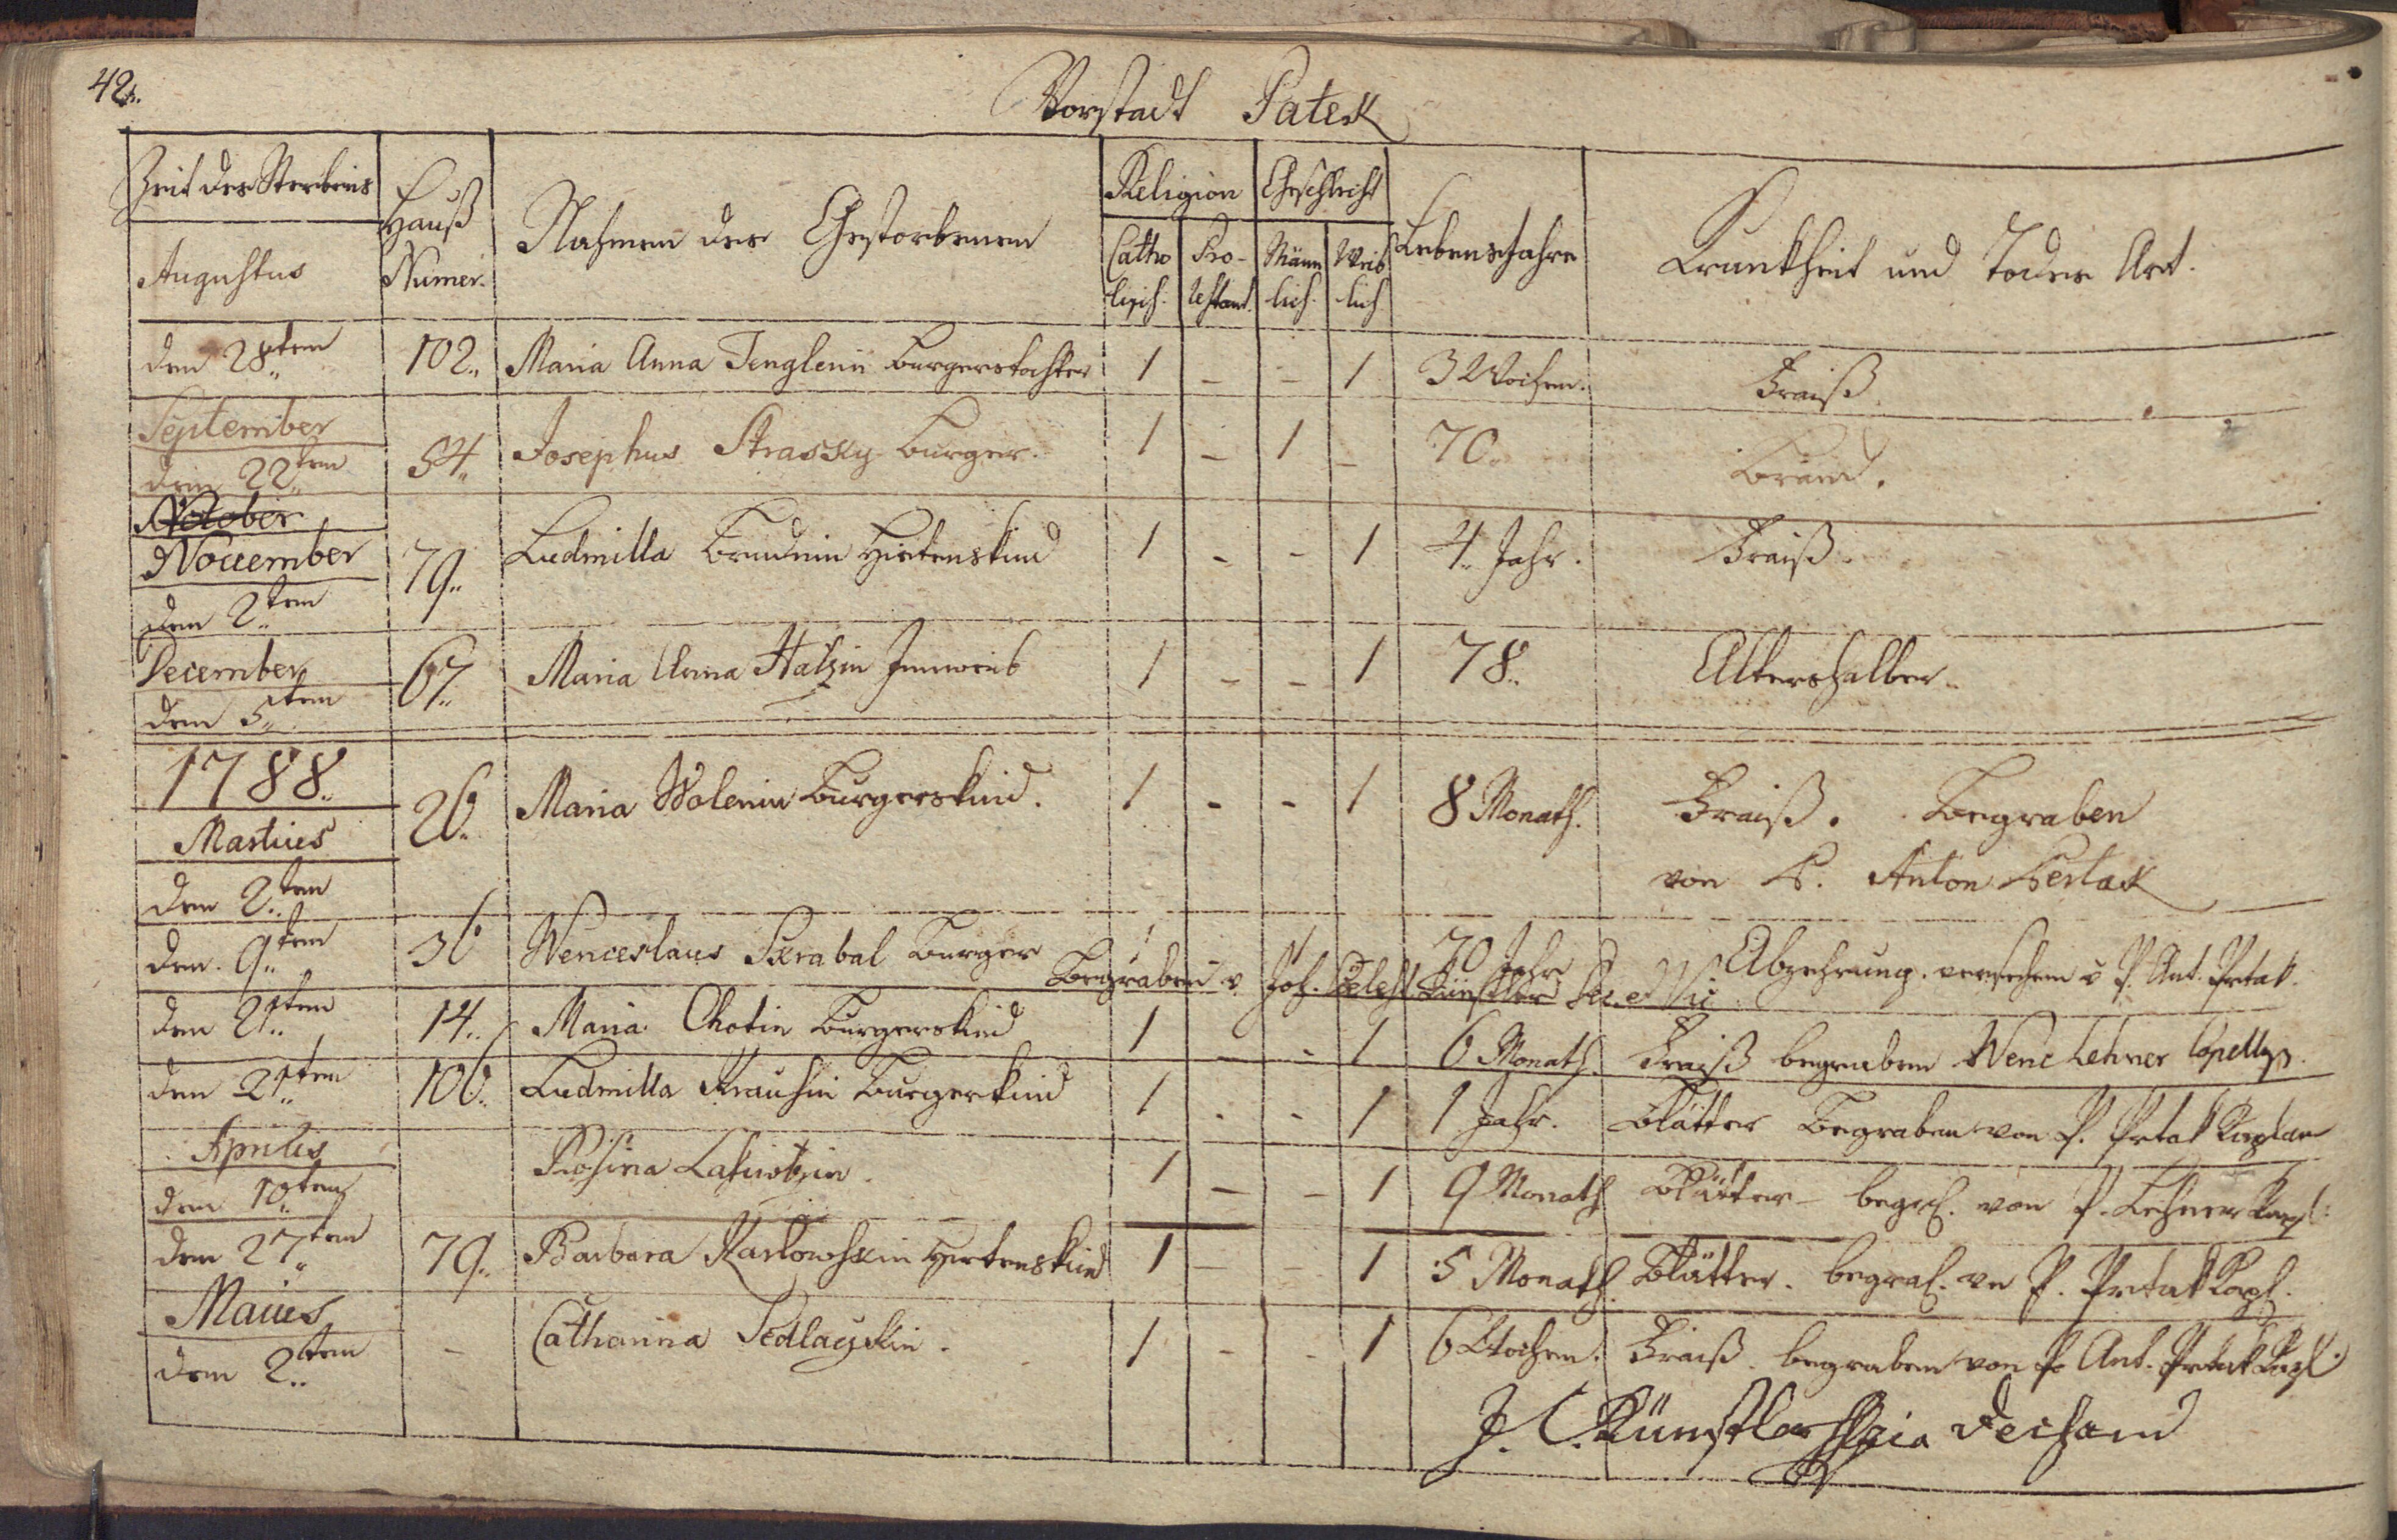 42.
Vorstadt Patek
Zeit des Sterbens
Augustus
Hauß Numer.
Nahmen der Gestorbenen
Religion
Catholisch. Protestant.
Geschlecht
Männlich. Weiblich
Lebensjahre
Krankheit und Todes Art.
den 28ten 102. Maria Anna Tenglerin burgerstochter 1 - - 1 3 Wochen. Fraiß.
September
den 22ten 54. Josephus Strassky burger. 1 - 1 - 70. Brand.
October
November
den 2ten 79. Ludmilla Hirtenskind 1 - - 1 4. Jahr. Fraiß.
December
den 5ten 67. Maria Anna Hatzin Innweib 1 - - 1 78. Altershalber.
1788.
Martius
den 2ten 26. Maria Wolenin Burgerskind. 1 - - 1 8 Monath. Fraiß. Begraben
von P. Anton
den 9ten 36 Wenceslaus Skrabal burger 1 1 70 Jahr Abzehrung. versehen v P. Ant. Prtak.
Begraben v Joh. Künstler
den 21ten 14. Maria Chotin burgerskind 1 - - 1 6 Monath. Fraiß begraben Wenc Lehner
den 21ten 106. Ludmilla Kraussin Burgerkind 1 - - 1 1 Jahr. Blätter Begraben von P. Prtak Kaplan
Aprilis
den 10ten Rosina 1 - - 1 9 Monath Blätter begr. von P. Lehner Kapl.
den 27ten 79. Barbara Karlowskin Hirtenskind 1 - - 1 5 Monath. Blätter. begrab. vn P. Prtak Kapl.
Maius
den 2ten - Catharina Sedlazkin. 1 - - 1 6 Wochen. Fraiß. begraben von P. Ant. Prtak Kapl.
J. C. Künstler Dechand